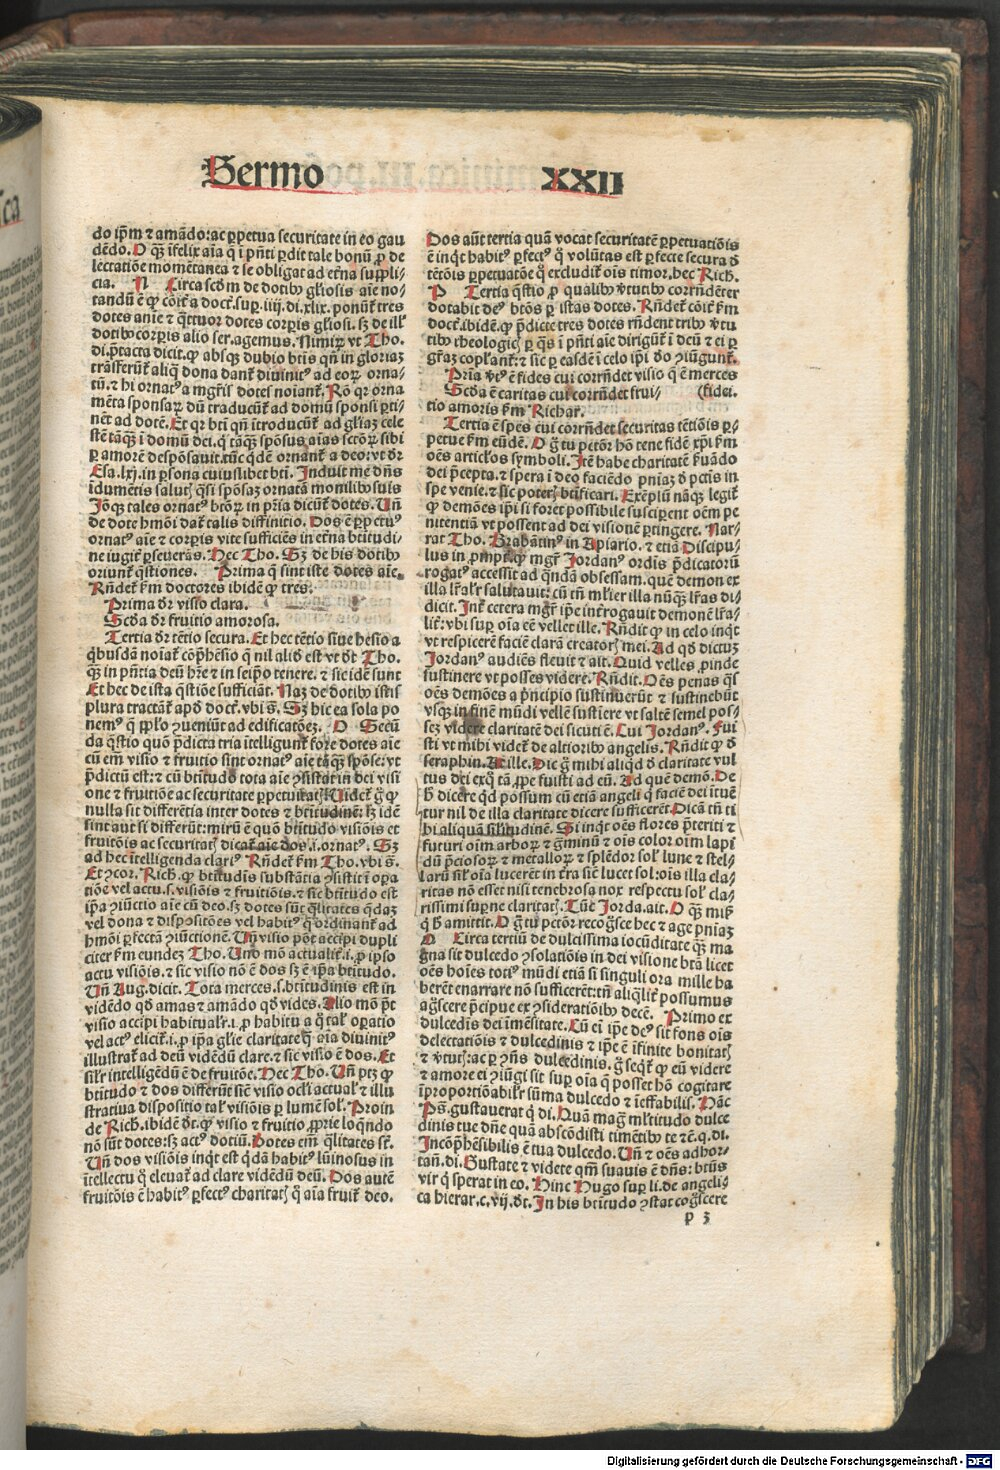 Sermo XXII
do ip̄m ⁊ amādo: ac ꝑpetua securitate in eo gau
dēdo. O qͣ ifelix aīa q̄ i pn̄ti ꝑdit tale bonū ꝓ de
lectatiōe momētanea ⁊ se obligat ad etn̄a suppli-
cia. N Circa scd̄m de dotibꝰ gl̄iosis aīe no-
tandū ē ꝙ cōit̄ a doct. sup. iiij. di. xlix. ponūt̄ tres
dotes anīe ⁊ q̄ttuor dotes corꝑis gl̄iosi. sꝫ de ill̓
dotibꝰ corꝑis alio ser. agemus. Nimiꝝ vt Tho.
di. p̄tacta dicit. ꝙ absqꝫ dubio btīs qn̄ in gloriaꝫ
trāsferūt̄ aliq̄ dona dant̄ diuinitꝰ ad eoꝝ orna-
tū. ⁊ hi ornatꝰ a mgr̄is dotes noiant̄. Rō qr orna
mēta sponsaꝝ dū traducūt̄ ad domū sponsi ꝑti-
nēt ad dotē. Et qr bti qn̄ itroducūt̄ ad gl̄iaꝫ cele
stē tāqͣꝫ i domū dei. q̄ tāqͣꝫ spōsus aīas sct̄oꝝ sibi
ꝑ amorē desponsauit. tūc q̄dē ornant̄ a deo: vt dr̄
Esa. lxj. in ꝑsona cuiuslibet bti. Induit me dn̄s
īdumētis salutꝭ q̄si spōsaꝫ ornatā monilibꝰ suis
Iōqꝫ tales ornatꝰ btōꝝ in pria dicūt̄ dotes. Vn̄
de dote hmōi dat̄ talis diffinitio. Dos ē ꝑpetuꝰ
ornatꝰ aīe ⁊ corꝑis vite sufficiēs in etn̄a btītudi-
ne iugit̄ ꝑseuerās. Hec Tho. Sꝫ de his dotibꝰ
oriunt̄ q̄stiones. Prima q̄ sint iste dotes aīe.
Rn̄det̄ ẜm doctores ibidē ꝙ tres.
Prima dr̄ visio clara.
Scd̄a dr̄ fruitio amorosa.
Tertia dr̄ tētio secura. Et hec tētio siue hesio a
q̄busdā noiat̄ cōp̄hēsio q̄ nil aliđ est vt dt̄ Tho.
qͣꝫ in pn̄tia deū hr̄e ⁊ in seip̄o tenere. ⁊ sic idē sunt
Et hec de ista q̄stiōe sufficiāt. Naꝫ de dotibꝰ istis
plura tractāt̄ apđ doct. vbi s̄. Sꝫ hic ea sola po
nemꝰ q̄ ꝓp̄lo ꝯueniūt ad edificatōeꝫ. O Secū
da q̄stio quō p̄dicta tria itelligunt̄ fore dotes aīe
cū em̄ visio ⁊ fruitio sint ornatꝰ aīe tāqͣꝫ spōse: vt
p̄dictū est: ⁊ cū btītudo tota aīe ꝯsistat in dei visi
one ⁊ fruitiōe ac securitate ꝑpetuitatꝭ. Videt̄ g̊ ꝙ
nulla sit differētia inter dotes ⁊ btītudinē: sꝫ idē
sint aut si differūt: mirū ē quō btītudo visiōis et
fruitōis ac securitatꝭ dicat̄ aīe dos. i. ornatꝰ. Sꝫ
ad hec itelligenda clariꝰ Rn̄det̄ ẜm Tho. vbi s̄.
Et ꝯcor. Rich. ꝙ btitudīs substātia ꝯsistit ī oꝑa
tiōe vel actu. s. visiōis ⁊ fruitiōis. ⁊ sic btītudo est
ip̄a ꝯiūctio aīe cū deo. sꝫ dotes sūt q̄litates q̄daꝫ
vel dona ⁊ dispositōes vel habitꝰ q̄ ordinant̄ ad
hmōi ꝑfectā ꝯiūctionē. Vn̄ visio pōt accipi dupli
citer ẜm eundeꝫ Tho. Uno mō actualit̄. i. ꝓ ipso
actu visiōis. ⁊ sic visio nō ē dos sꝫ ē ip̄a btītudo.
Vn̄ Aug. dicit. Tota merces. s. btītudinis est in
vidēdo qđ amas ⁊ amādo qđ vides. Alio mō pt̄
visio accipi habitualr̄. i. ꝓ habitu a q̊ tal̓ oꝑatio
vel actꝰ elicit̄. i. ꝓ ip̄a gl̄ie claritate q̄ aīa diuinitꝰ
illustrat̄ ad deū vidēdū clare. ⁊ sic visio ē dos. Et
sil̓r intelligēdū ē de fruitōe. Hec Tho. Vn̄ ptꝫ ꝙ
btītudo ⁊ dos differūt sic visio ocl̓i actual̓ ⁊ illu
stratiua dispositio tal̓ visiōis ꝑ lumē sol̓. Proin
de Rich. ibidē dt̄. ꝙ visio ⁊ fruitio ꝓprie loq̄ndo
nō sūt dotes: sꝫ actꝰ dotiū. Dotes em̄ q̄litates st̄.
Vn̄ dos visiōis inqt est q̄dā habitꝰ lūinosus in
ītellectu q̊ eleuat̄ ad clare vidēdū deū. Dos autē
fruitōis ē habitꝰ ꝑfectꝰ charitatꝭ q̊ aīa fruit̄ deo.
Dos aūt tertia quā vocat securitatē ꝑpetuatiōis
ē inqt habitꝰ ꝑfectꝰ q̊ volūtas est ꝑfecte secura đ
tētōis ꝑpetuatōe q̊ excludit̄ oīs timor. hec Rich.
P Tertia q̄stio ꝓ qualibꝰ v̓tutibꝰ corrn̄dēter
dotabit deꝰ btōs ꝑ istas dotes. Rn̄det̄ cōit̄ ẜm
doct. ibidē. ꝙ p̄dicte tres dotes rn̄dent tribꝰ v̓tu
tibꝰ theologicꝭ ꝑ q̄s i pn̄ti aīe dirigūt̄ i deū ⁊ ei ꝑ
gr̄aꝫ copl̓ant̄: ⁊ sic ꝑ easdē i celo ip̄i đo ꝯiūgunt̄.
Pria v̓tꝰ ē fides cui corrn̄det visio q̄ ē merces
Scđa ē caritas cui corrn̄det frui- (fidei.
tio amoris ẜm Richar.
Tertia ē spes cui corrn̄det securitas tētiōis ꝑ-
petue ẜm eūdē. O g̊ tu petōr hō tene fidē xp̄i ẜm
oēs articl̓os symboli. Itē habe charitatē ẜuādo
dei p̄cepta. ⁊ spera i deo faciēdo pniaꝫ đ pctis in
spe venie. ⁊ sic poterꝭ btificari. Exēplū nāqꝫ legit̄
ꝙ demōes ip̄i si foret possibile susciperent oēm pe
nitentiā vt possent ad dei visionē ꝑtingere. Nar-
rat Tho. Brabātinꝰ in Apiario. ⁊ etiā Discipu-
lus in ꝓmpt. ꝙ mgr̄ Jordanꝰ ordīs p̄dicatorū
rogatꝰ accessit ad q̄ndā obsessam. quē demon ex
illa lr̄al̓r salutauit: cū tn̄ ml̓ier illa nūqͣꝫ lr̄as di-
dicit. Int̄ cetera mgr̄ ip̄e int̄rogauit demonē lr̄a-
lit̄: vbi sup̄ oīa eē vellet ille. Rn̄dit ꝙ in celo inqt
vt respicerē faciē clarā creatorꝭ mei. Ad qđ dictuꝫ
Jordanꝰ audiēs fleuit ⁊ ait. Quid velles ꝓinde
sustinere vt posses videre. Rn̄dit. Oēs penas q̄s
oēs demōes a p̄ncipio sustinuerūt ⁊ sustinebūt
vsqꝫ in finē mūdi vellē sustīere vt saltē semel pos-
seꝫ videre claritatē dei sicuti ē. Cui Jordanꝰ. Fui
sti vt mihi videt̄ de altiorībꝰ angelis. Rn̄dit ꝙ đ
seraphin. At ille. Dic g̊ mihi aliqđ đ claritate vul
tus dei exq̊ tā ꝓpe fuisti ad eū. Ad quē demō. De
h̄ dicere qđ possum cū etiā angeli q̄ faciē dei ituēt
tur nil de illa claritate dicere sufficerēt. Dicā tn̄ ti
bi aliquā sil̓itudinē. Si inqt oēs flores p̄teriti ⁊
futuri oīm arboꝝ ⁊ gminū ⁊ oīs color oīm lapi
dū p̄ciosoꝝ ⁊ metalloꝝ ⁊ splēdor sol̓ lune ⁊ stel-
larū sil̓ oīa lucerēt in tra sic lucet sol: oīs illa cla-
ritas nō esset nisi tenebrosa nox respectu sol̓ cla-
rissimi suꝑne claritatꝭ. Tūc Jorda. ait. O qͣꝫ misꝫ
q̊ h̄ amittit. O g̊ tu petōr recog̊sce hec ⁊ age pniaꝫ
Q Circa tertiū de dulcissima iocūditate qͣꝫ ma
gna sit dulcedo ꝯsolatiōis in dei visione btā̄ licet
oēs hoīes totiꝰ mūdi etiā si singuli ora mille ha
berēt enarrare nō sufficerēt: tn̄ aliql̓it̄ possumus
ag̊scere p̄cipue ex ꝯsideratiōibꝰ decē. Primo ex
dulcedīs dei imēsitate. Cū ei ip̄e deꝰ sit fons oīs
delectatiōis ⁊ dulcedinis ⁊ ip̄e ē īfinite bonitatꝭ
⁊ v̓tutꝭ: ac ꝑ ꝯn̄s dulcedinis. g̊ seqt̄ ꝙ eū videre
⁊ amore ei ꝯiūgi sit suꝑ oīa q̄ posset hō cogitare
iproportiōabil̓r sūma dulcedo ⁊ ieffabilis. Hāc
Ps̄. gustauerat q̊ di. Quā mag̊ ml̓titudo dulce
dinis tue dn̄e quā abscōdisti timētibꝰ te ⁊c̄. q̊. di.
Incōp̄hēsibilis ē tua dulcedo. Vn̄ ⁊ oēs adhor-
tat̄. di. Gustate ⁊ videte qm̄ suauis ē dn̄s: btūs
vir q̊ sperat in eo. Hinc Hugo suꝑ li. de angeli-
ca hierar. c. vij. dt̄. In his btītudo ꝯstat cog̊scere
p 3
Digitalisierung gefördert durch die Deutsche Forschungsgemeinschaft - DFG